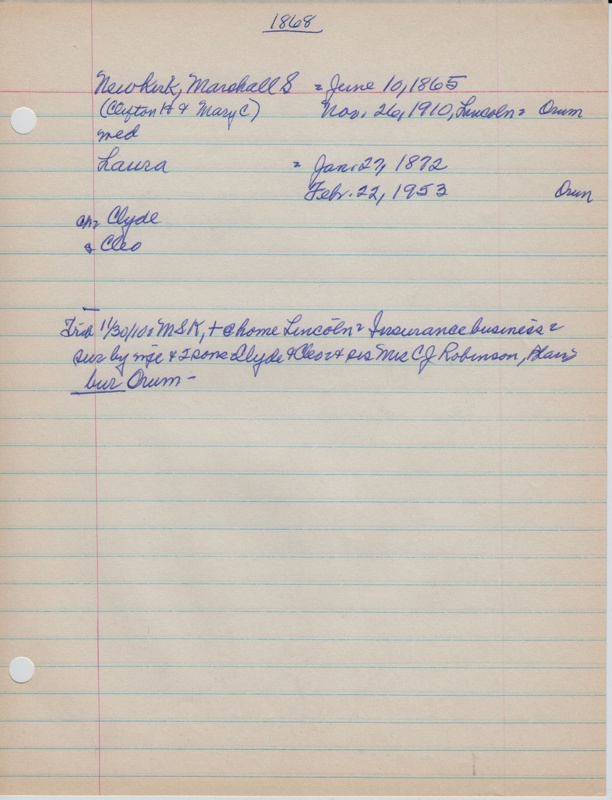 1868
Newkirk, Marshall S = June 10, 1865
(Clifton H & Mary C) Nov. 26, 1910, Lincoln = Orum
med
Laura = Jan. 27, 1872
Febr. 22, 1953 Orum
ch= Clyde
& Cleo
Trib 11/30/10: M S K, + @ home Lincoln = Insurance business =
sur by wife & 2 sons Clyde & Cleo & sis Mrs C J Robinson, Blair
bur Orum -